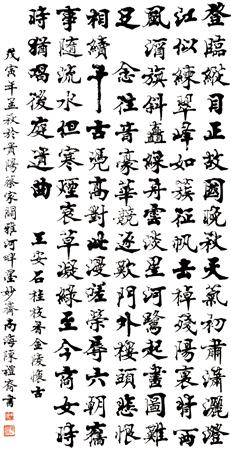 登臨縱目正故國晚秋天氣初肅瀟灑澄
江似練翠峰如簇征帆去棹殘陽裏背西
風酒旗斜矗綵舟雲淡星河鷺起畫圖難
足 念往昔豪華競逐歎門外樓頭悲恨
相續千古憑高對此漫嗟榮辱六朝舊
事隨流水但寒煙衰草凝綠至今商女時
時猶唱後庭遺曲 王安石桂枝香金陵懷古
戊寅年孟秋於貴陽蔡家關雅河畔墨妙齋高海陳禮齋書